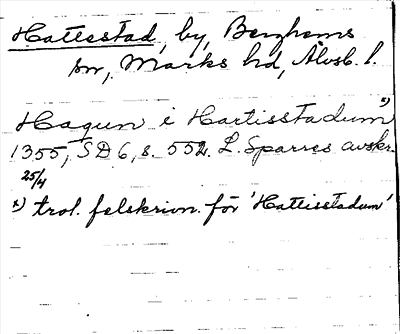 Hattestad, by, Berghems
sn, Marks hd, Älvsb. l.
Hagun i Hartisstadum x)
1355, SD 6, s. 552. L. Sparres avskr.
25/4
x) trol. felskrivn. för 'Hattisstadum'